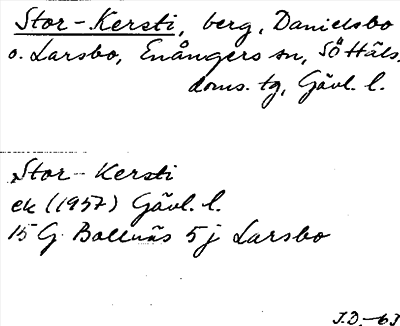 Stor-Kersti, berg, Danielsbo
o. Larsbo, Enångers sn, SöHäls.
doms. tg, Gävl. l.
Stor-Kersti
ek (1957) Gävl. l.
15 G Bollnäs 5 j Larsbo
J.D.-63